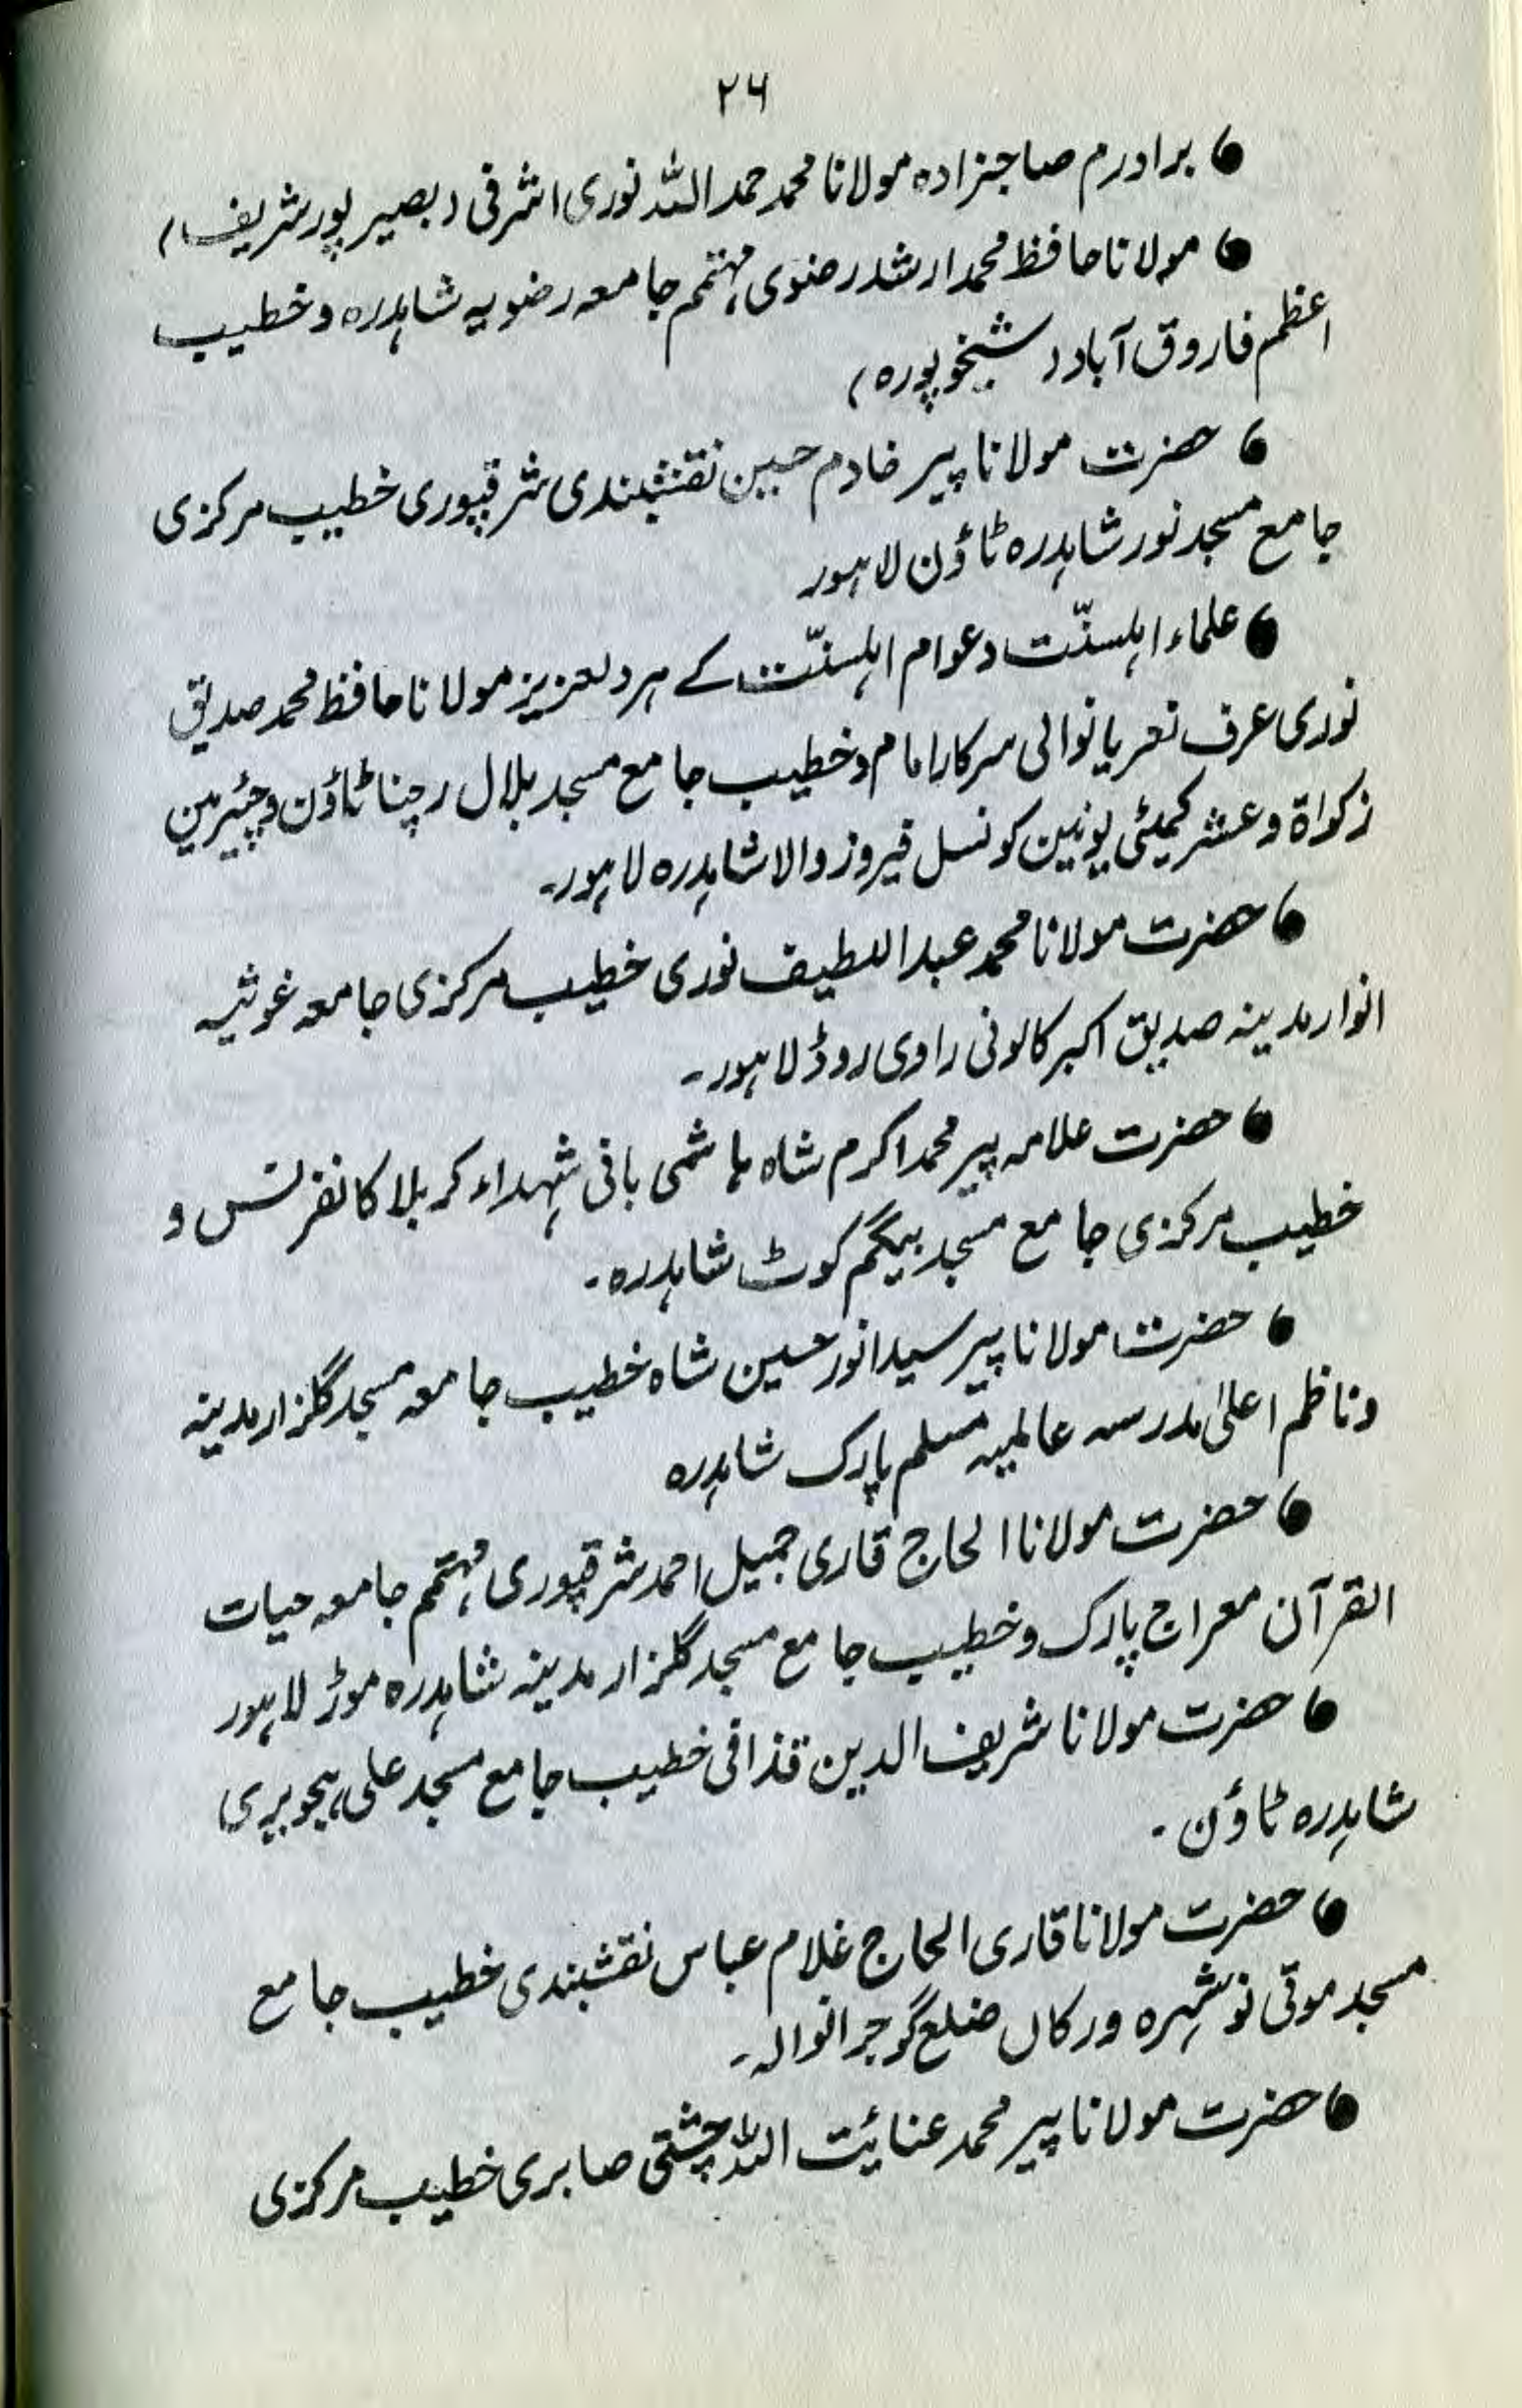 ۲۶
● برادرم صاحبزادہ مولانا محمد حمد اللہ نوری اشرفی (بصیر پور شریف)
● مولانا حافظ محمد ارشد رضوی مہتمم جامعہ رضویہ شاہدرہ و خطیب
اعظم فاروق آباد (شیخوپورہ)
● حضرت مولانا پیر خادم حسین نقشبندی شرقپوری خطیب مرکزی
جامع مسجد نور شاہدرہ ٹاؤن لاہور
● علماء اہلسنّت و عوام اہلسنّت کے ہر دلعزیز مولانا حافظ محمد صدیق
نوری عرف نعریانوالی سرکار امام و خطیب جامع مسجد بلال رچنا ٹاؤن و چئیرمین
زکواۃ و عشر کمیٹی یونین کونسل فیروز والا شاہدرہ لاہور۔
● حضرت مولانا محمد عبد اللطیف نوری خطیب مرکزی جامعہ غوثیہ
انوار مدینہ صدیق اکبر کالونی راوی روڈ لاہور۔
● حضرت علامہ پیر محمد اکرم شاہ ہاشمی بانی شہداء کربلا کانفرنس و
خطیب مرکزی جامع مسجد بیگم کوٹ شاہدرہ۔
● حضرت مولانا پیر سید انور حسین شاہ خطیب جامعہ مسجد گلزار مدینہ
و ناظم اعلیٰ مدرسہ عالمیہ مسلم پارک شاہدرہ
● حضرت مولانا الحاج قاری جمیل احمد شرقپوری مہتمم جامعہ حیات
القرآن معراج پارک و خطیب جامع مسجد گلزار مدینہ شاہدرہ موڑ لاہور
● حضرت مولانا شریف الدین قذافی خطیب جامع مسجد علی ہجویری
شاہدرہ ٹاؤن۔
● حضرت مولانا قاری الحاج غلام عباس نقشبندی خطیب جامع
مسجد موتی نوشہرہ ورکاں ضلع گوجرانوالہ۔
● حضرت مولانا پیر محمد عنائیت اللہ چشتی صابری خطیب مرکزی